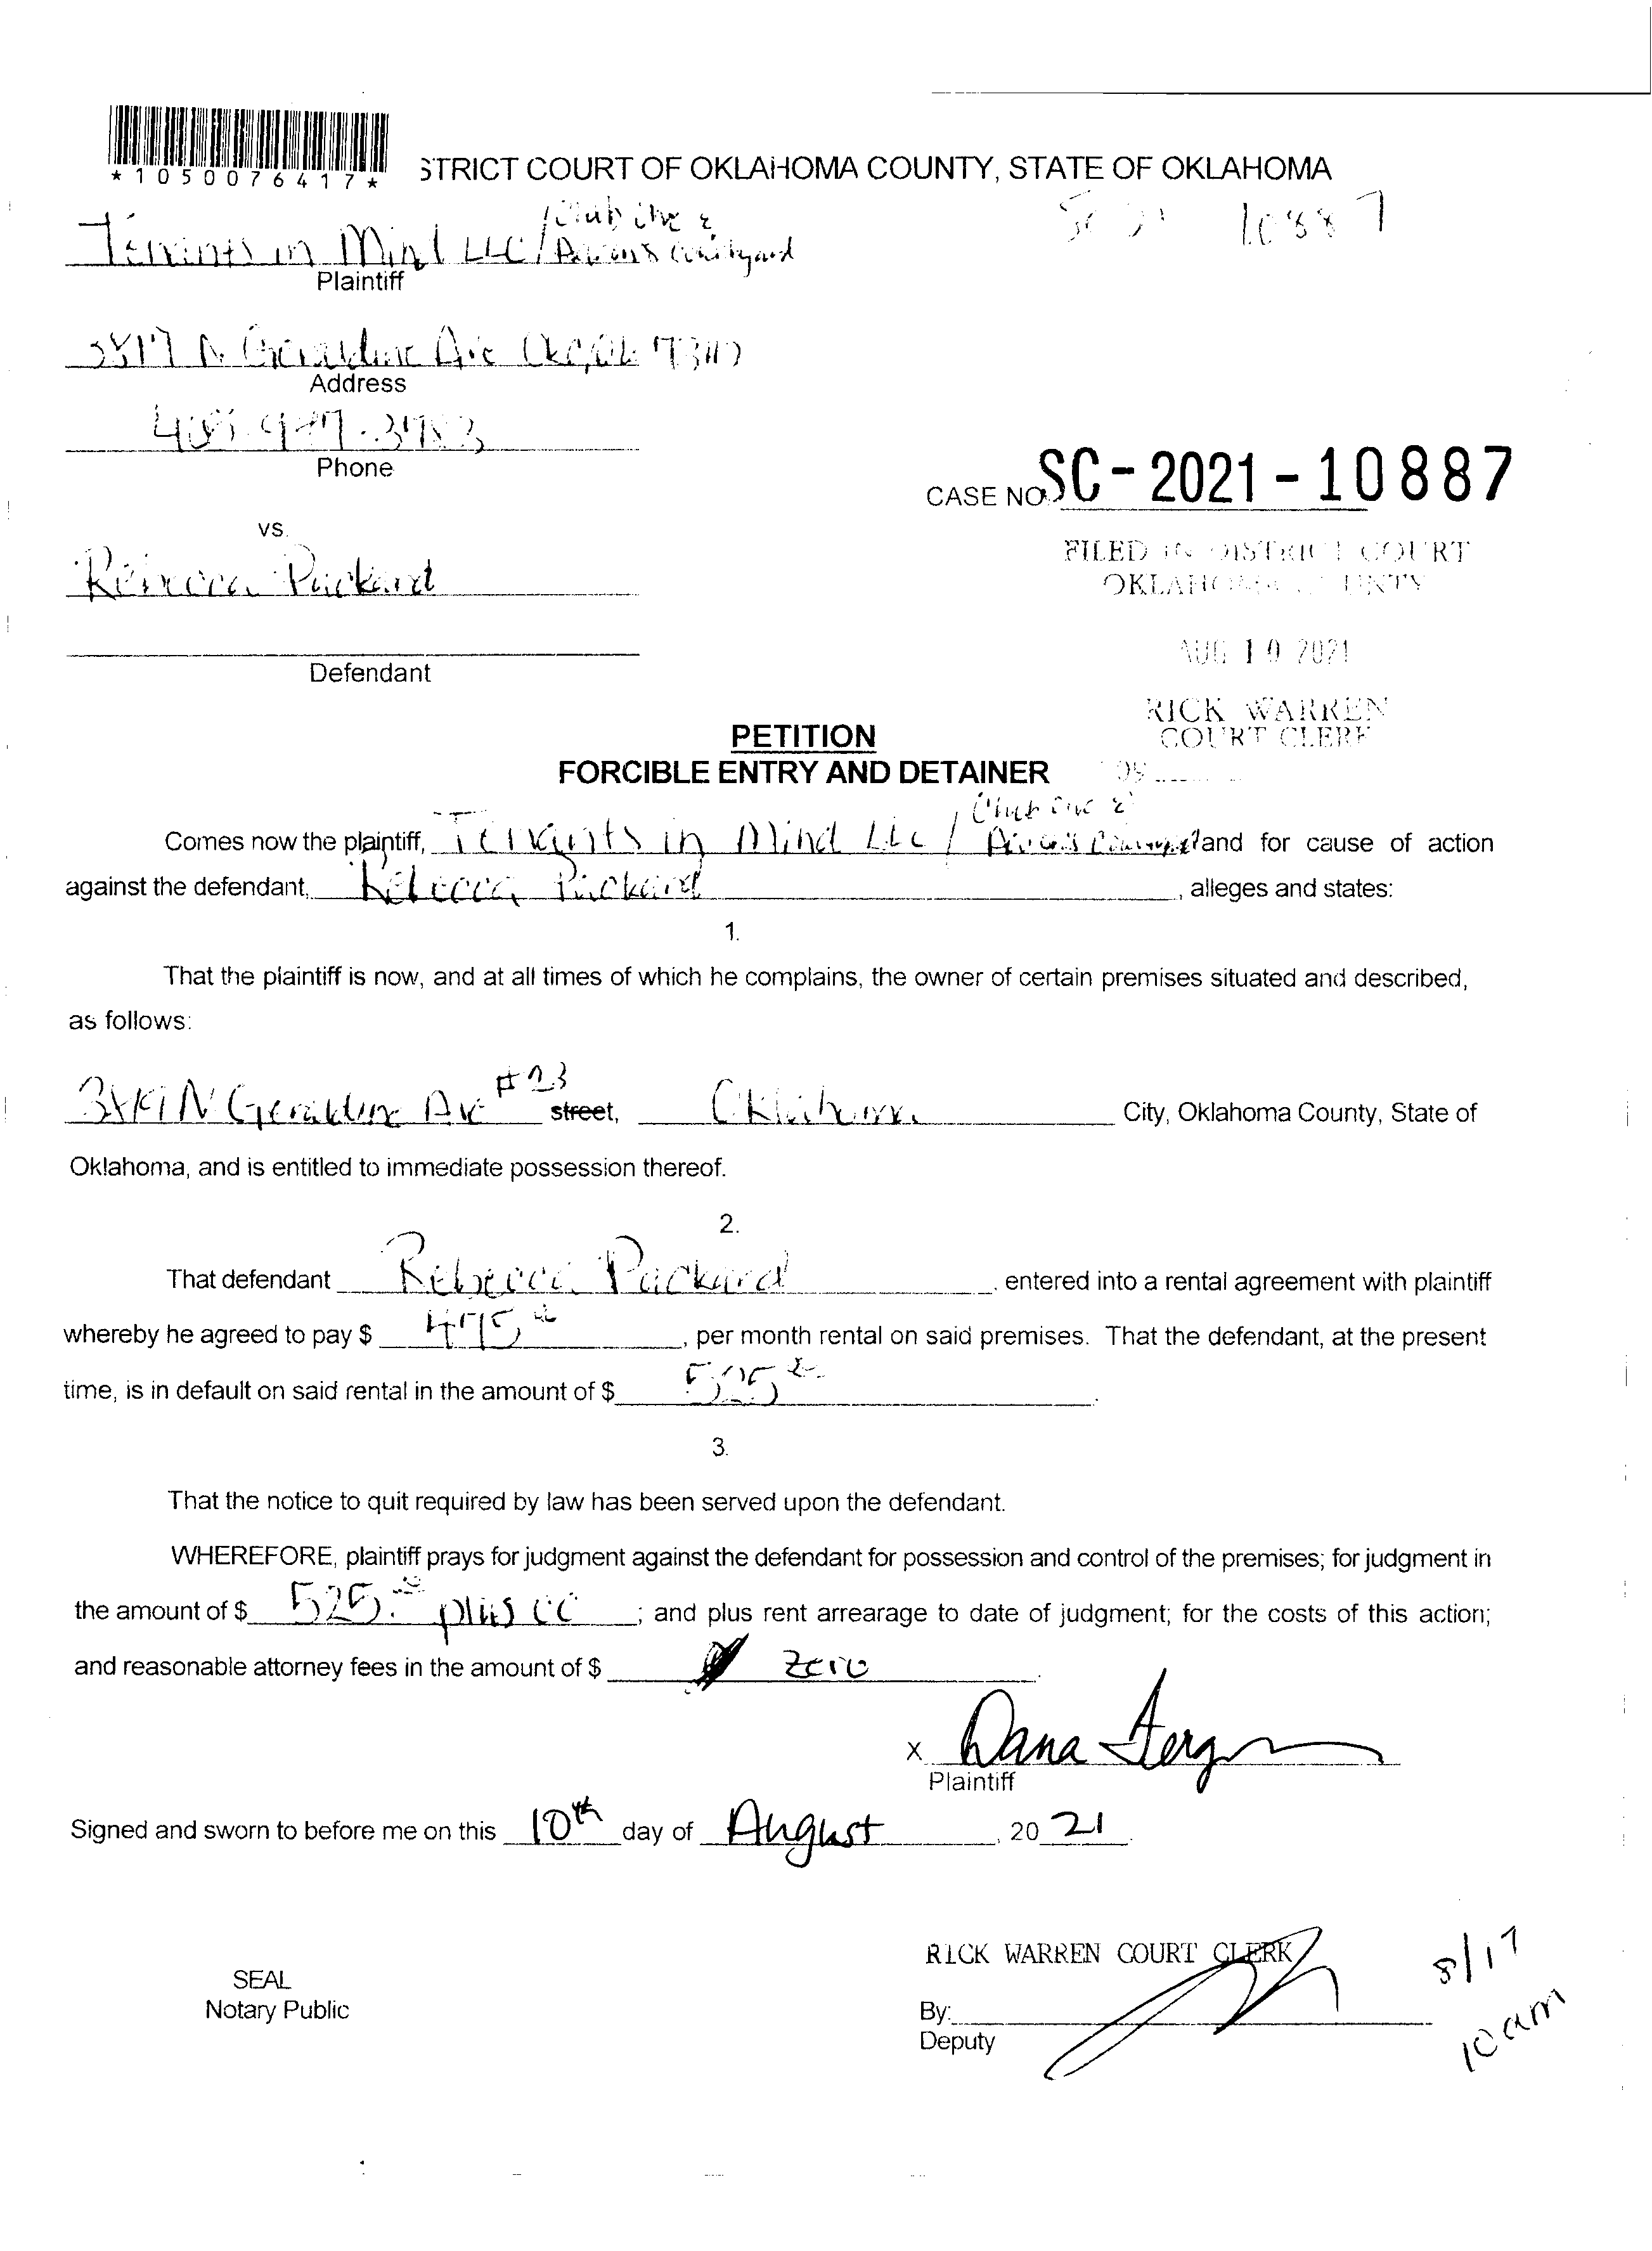 *1050076417*
STRICT COURT OF OKLAHOMA COUNTY, STATE OF OKLAHOMA
SC 21 10887
/Club One &
Tenants in Mind LLC/ Courtyard
Plaintiff
N Geraldine Ave OKC, OK
Address
Phone
CASE NO. SC-2021-10887
vs.
Rebecca Packard
FILED IN DISTRICT COURT
OKLAHOMA COUNTY
AUG 10 2021
Defendant
RICK WARREN
COURT CLERK
PETITION
FORCIBLE ENTRY AND DETAINER
Club One &
Comes now the plaintiff, Tenants in Mind LLC / and for cause of action
against the defendant, Rebecca Packard, alleges and states:
1.
That the plaintiff is now, and at all times of which he complains, the owner of certain premises situated and described,
as follows:
N Geraldine Ave #23 street, Oklahoma City, Oklahoma County, State of
Oklahoma, and is entitled to immediate possession thereof.
2.
That defendant Rebecca Packard, entered into a rental agreement with plaintiff
whereby he agreed to pay $ 475, per month rental on said premises. That the defendant, at the present
time, is in default on said rental in the amount of $ 525.
3.
That the notice to quit required by law has been served upon the defendant.
WHEREFORE, plaintiff prays for judgment against the defendant for possession and control of the premises; for judgment in
the amount of $ 525. plus CC; and plus rent arrearage to date of judgment; for the costs of this action;
and reasonable attorney fees in the amount of $ zero.
x Dana
Plaintiff
Signed and sworn to before me on this 10th day of August, 20 21.
RICK WARREN COURT CLERK
8/17
10 am
SEAL
Notary Public
By:
Deputy